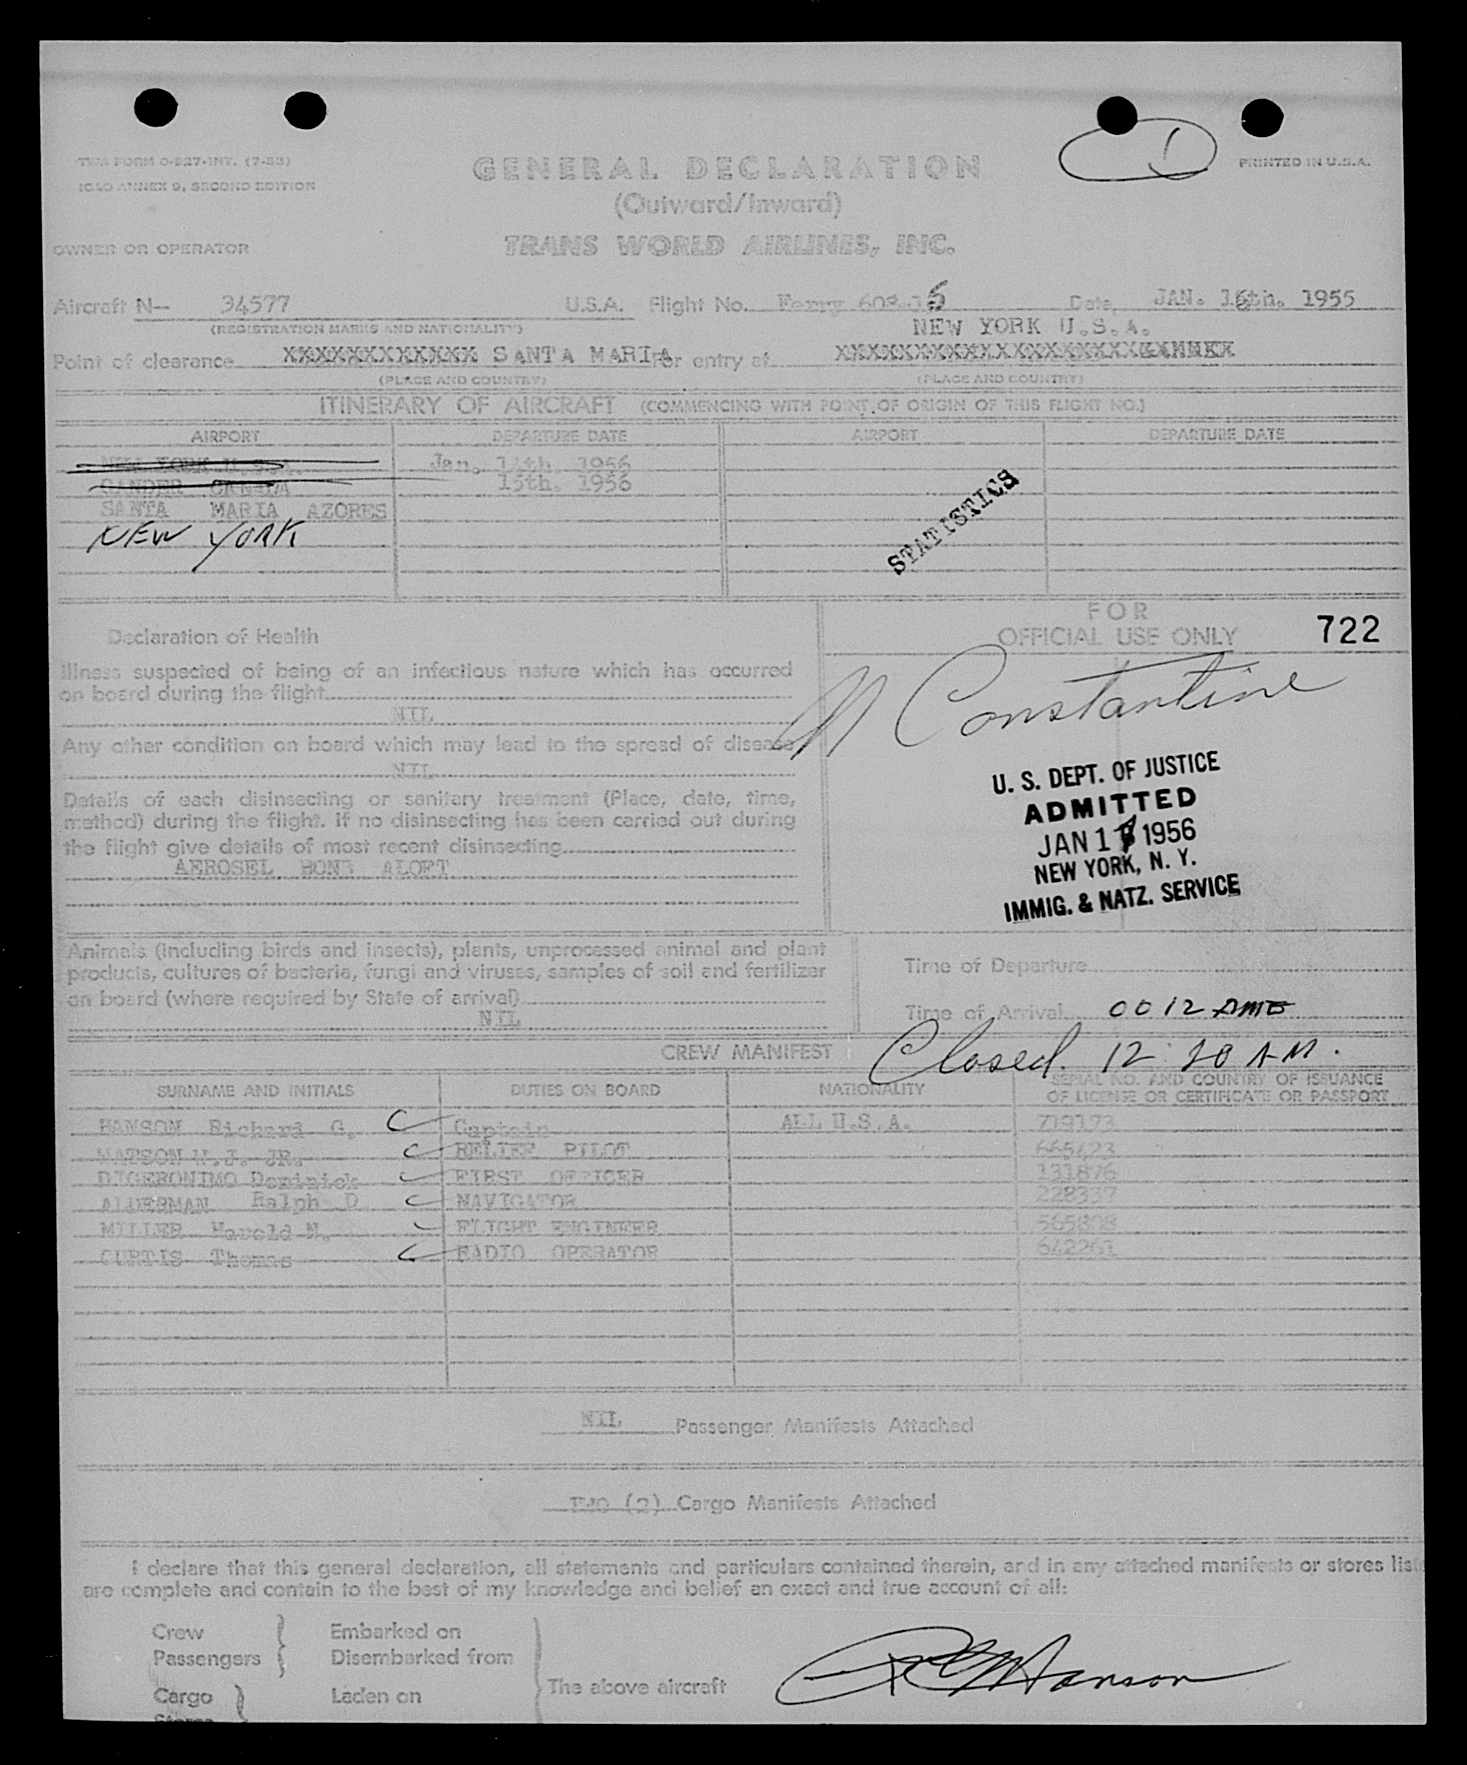 TWA FORM O-827-INT. (7-53)
ICAO ANNEX 9, SECOND EDITION
GENERAL DECLARATION
(Outward/Inward)
PRINTED IN U.S.A.
OWNER OR OPERATOR
TRANS WORLD AIRLINES, INC.
Aircraft N— 34577 U.S.A. Flight No. Ferry Date, JAN. 16th. 1955
(REGISTRATION MARKS AND NATIONALITY)
NEW YORK U.S.A.
Point of clearance XXXXXXXXXXXX SANTA MARIA For entry at
(PLACE AND COUNTRY) (PLACE AND COUNTRY)
ITINERARY OF AIRCRAFT (COMMENCING WITH POINT OF ORIGIN OF THIS FLIGHT NO.)
AIRPORT DEPARTURE DATE AIRPORT DEPARTURE DATE
NEW YORK U.S.A. Jan. 14th. 1956
GANDER CANADA 15th. 1956
SANTA MARIA AZORES
NEW YORK
STATISTICS
FOR
OFFICIAL USE ONLY 722
Declaration of Health
Illness suspected of being of an infectious nature which has occurred
on board during the flight
NIL
Any other condition on board which may lead to the spread of disease
NIL
Details of each disinsecting or sanitary treatment (Place, date, time,
method) during the flight. If no disinsecting has been carried out during
the flight give details of most recent disinsecting
AEROSEL BOMB ALOFT
Constantine
U. S. DEPT. OF JUSTICE
ADMITTED
JAN 1 1956
NEW YORK, N. Y.
IMMIG. & NATZ. SERVICE
Animals (including birds and insects), plants, unprocessed animal and plant
products, cultures of bacteria, fungi and viruses, samples of soil and fertilizer
on board (where required by State of arrival)
NIL
Time of Departure
Time of Arrival 0012
Closed. 12 20 AM.
CREW MANIFEST
SURNAME AND INITIALS DUTIES ON BOARD NATIONALITY SERIAL NO. AND COUNTRY OF ISSUANCE
OF LICENSE OR CERTIFICATE OR PASSPORT
HANSON Richard G. Captain ALL U.S.A. 719173
WATSON W.J. JR. RELIEF PILOT 665423
DIGERONIMO Dominick FIRST OFFICER 131876
ALDERMAN Ralph D NAVIGATOR 228337
MILLER Harold M. FLIGHT ENGINEER 565808
CURTIS Thomas RADIO OPERATOR 642261
NIL Passenger Manifests Attached
TWO (2) Cargo Manifests Attached
I declare that this general declaration, all statements and particulars contained therein, and in any attached manifests or stores list
are complete and contain to the best of my knowledge and belief an exact and true account of all:
Crew Embarked on
Passengers Disembarked from
The above aircraft
Cargo Laden on
Stores
RG Hanson